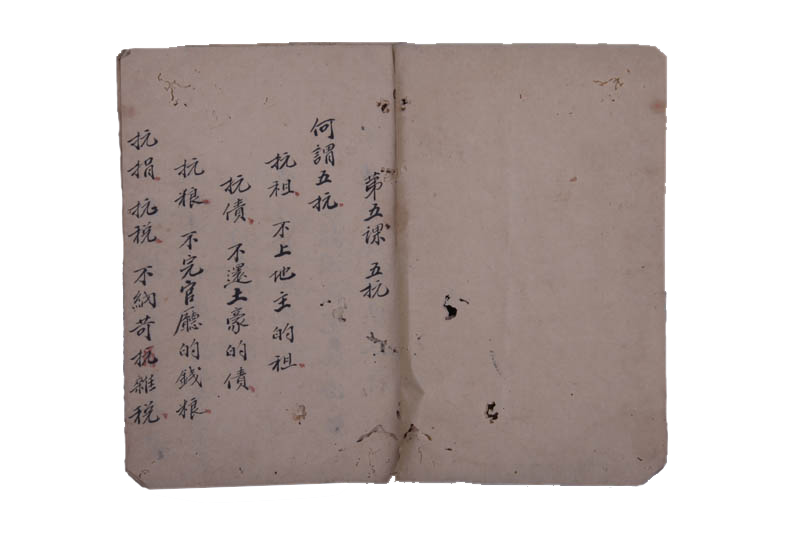 第五課 五抗
何謂五抗
抗祖 不上地主的祖
抗債 不還土豪的債
抗粮 不完官廳的錢粮
抗捐 抗税 不納苛抗雜税